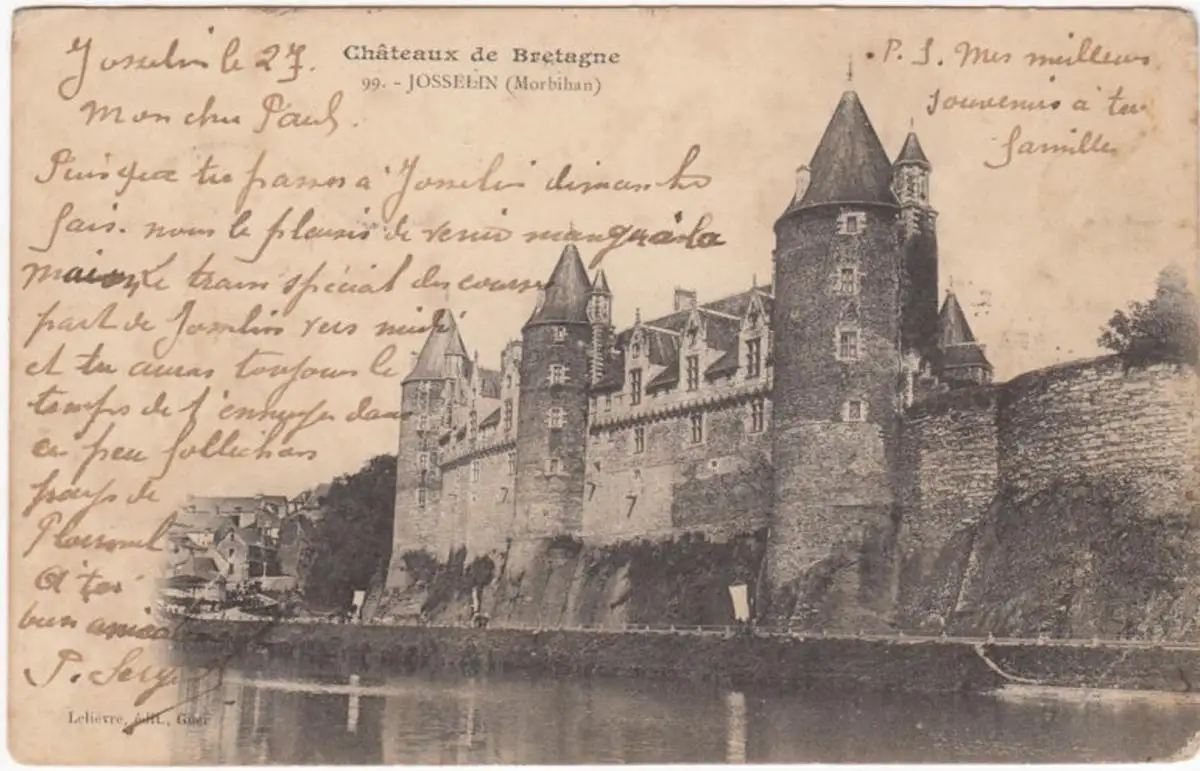 Châteaux de Bretagne
99. - JOSSELIN (Morbihan)
Josselin le 27.
Mon cher Paul.
Puisque tu passes à Josselin dimanche
fais. nous le plaisir de venir manger à la
maison. Le train spécial des courses
part de Josselin vers minuit
et tu auras toujours le
temps de
en peu
pays de
Ploermel
A toi
bien amicalement
P. Serge
P. S. Mes meilleurs
souvenirs à ta
famille
Lelièvre, édit., Guer